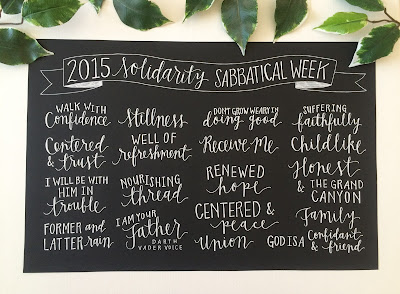 2015 Solidarity SABBATICAL WEEK
WALK WITH
Confidence
Centered
& trust
I WILL BE WITH
HIM IN
trouble
FORMER AND
LATTER rain
Stillness
WELL OF
refreshment
NOURISHING
thread
I AM YOUR
Father
DARTH
VADER VOICE
DON'T GROW WEARY IN
doing good
Receive Me
RENEWED
hope
CENTERED &
peace
Union
SUFFERING
faithfully
Childlike
Honest
& THE GRAND
CANYON
Family
GOD IS A Confidant
& friend